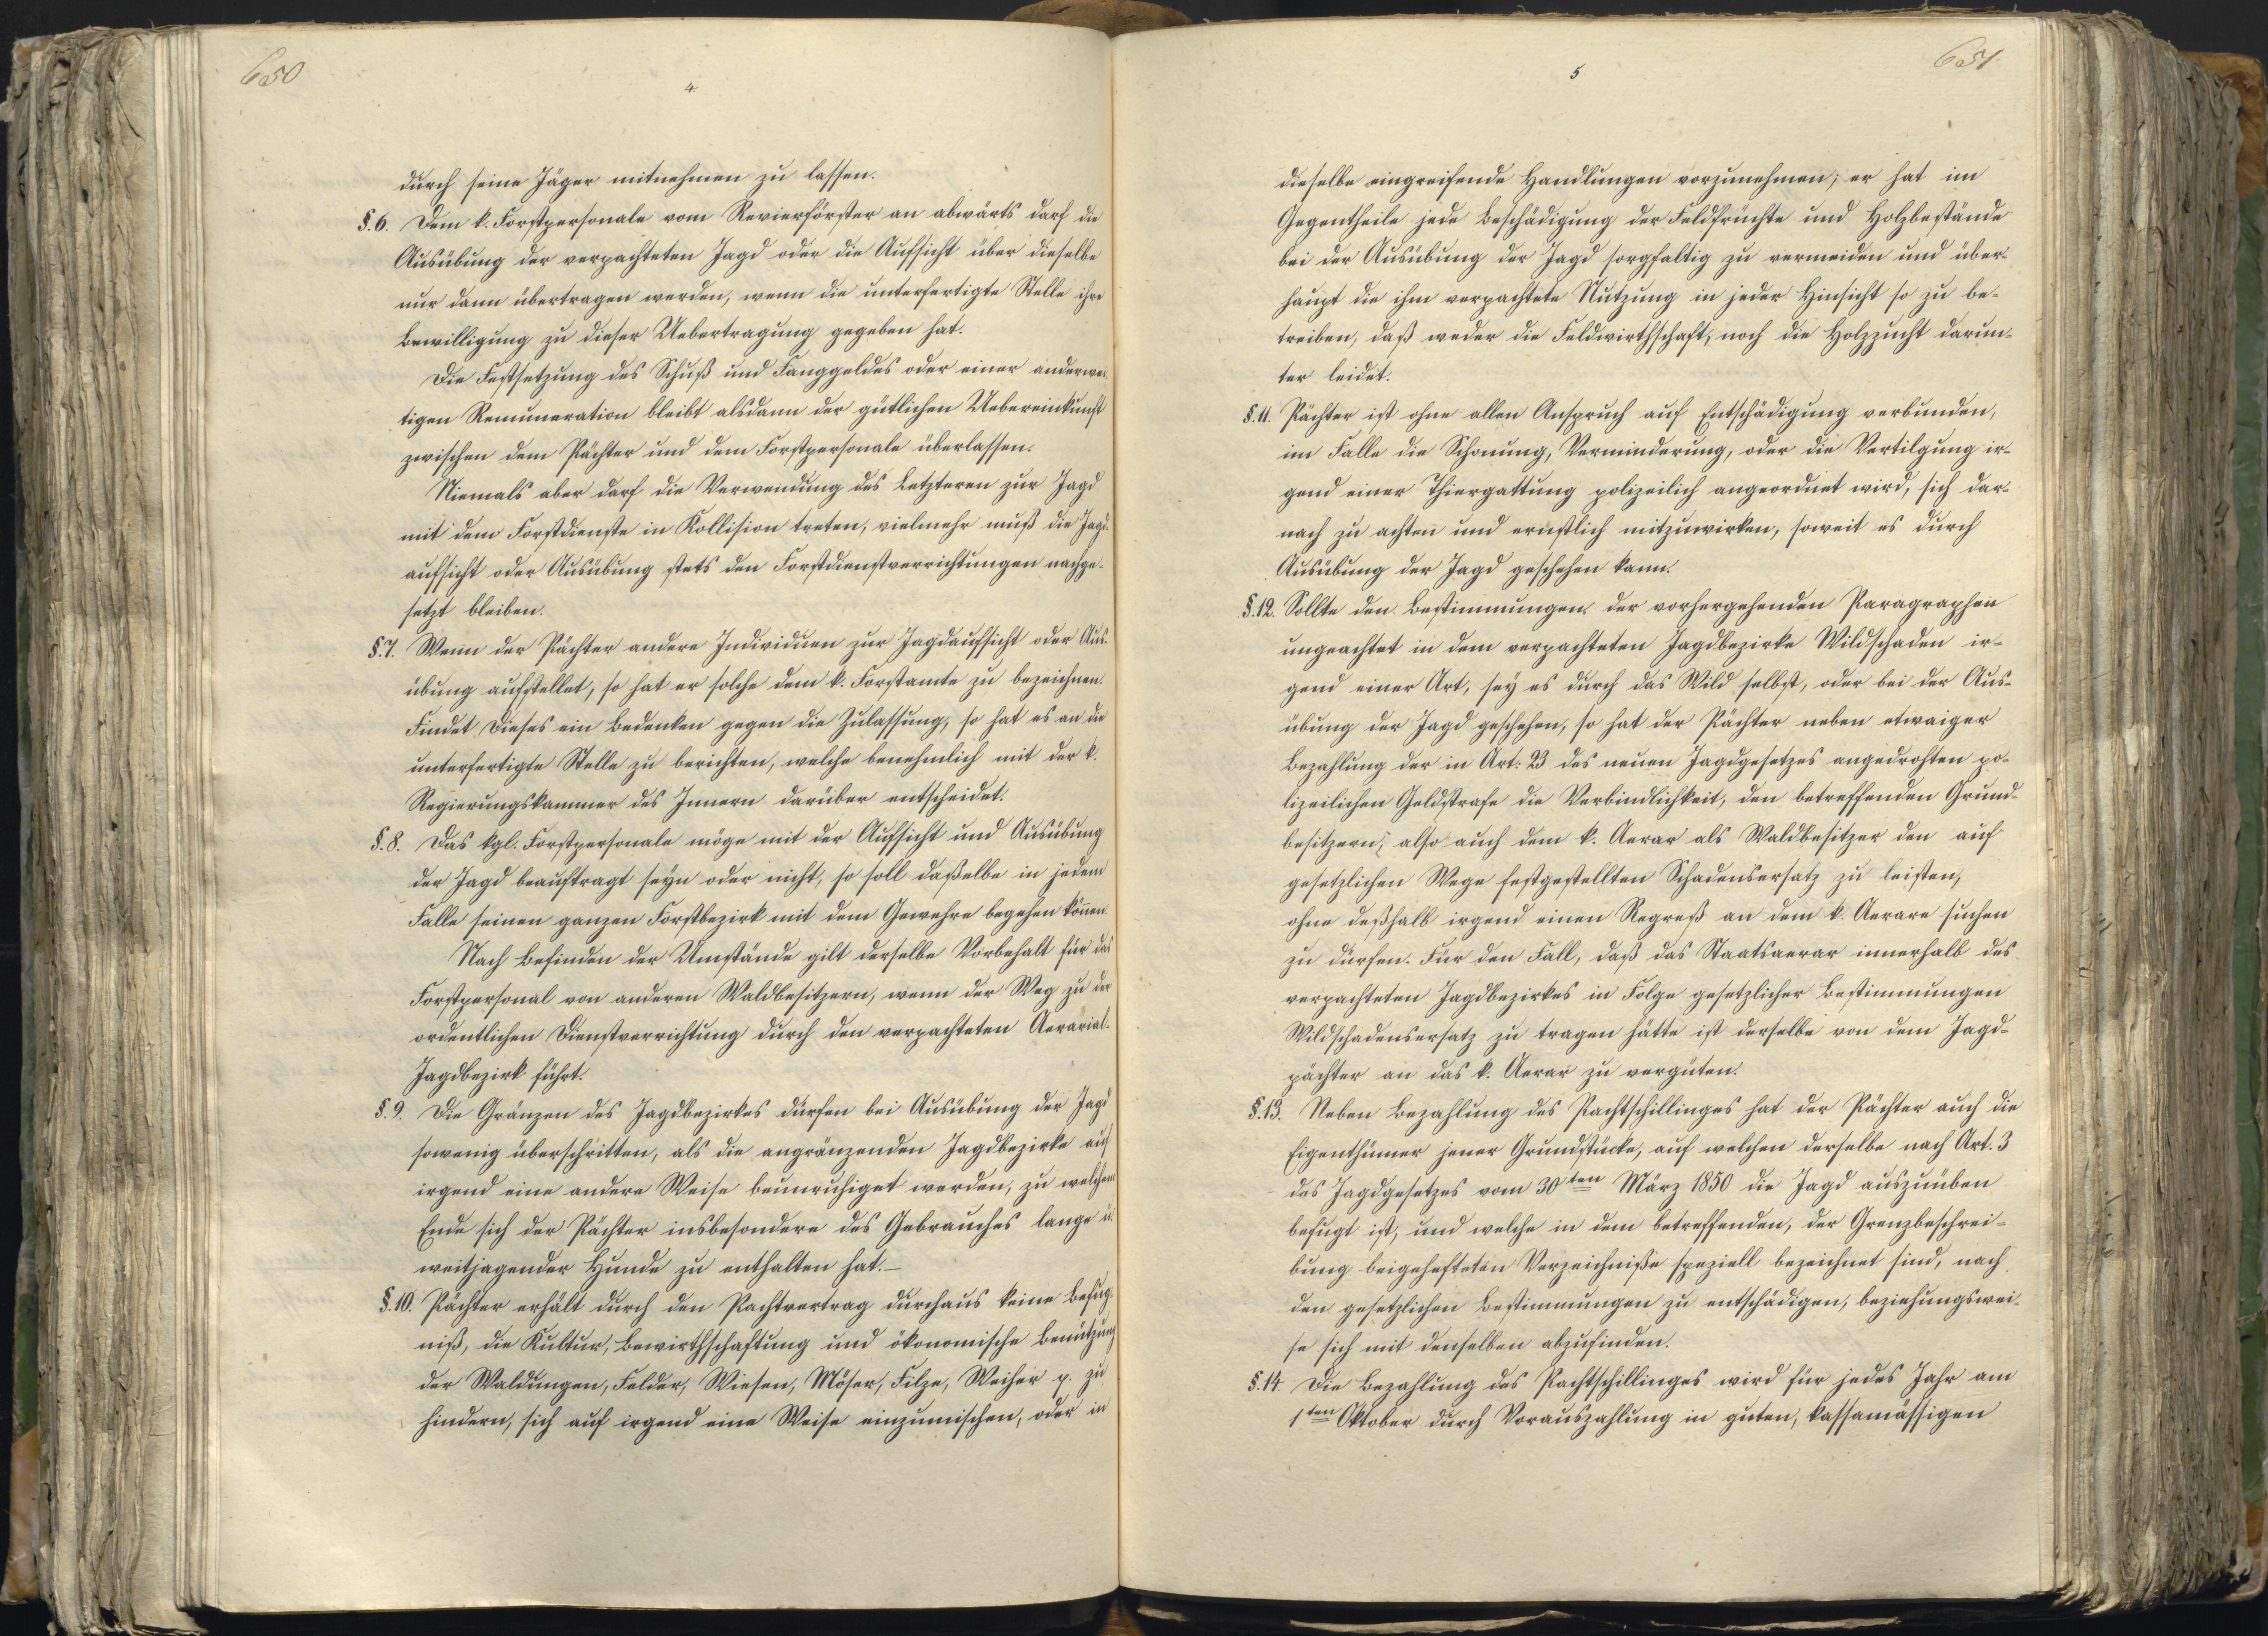 650
4.
durch seine Jäger mitnehmen zu lassen.
§.6. Dem k. Forstpersonale vom Revierförster an abwärts darf die
Ausübung der verpachteten Jagd oder die Aufsicht über dieselbe
nur dann übertragen werden, wenn die unterfertigte Stelle ihre
Bewilligung zu dieser Uebertragung gegeben hat.
Die Festsetzung des Schuß und Fanggeldes oder einer anderwei-
tigen Remuneration bleibt alsdann der gütlichen Uebereinkunft
zwischen dem Pächter und dem Forstpersonale überlassen.
Niemals aber darf die Verwendung des Letzteren zur Jagd
mit dem Forstdienste in Kollision treten, vielmehr muß die Jagd-
aufsicht oder Ausübung stets den Forstdienstverrichtungen nachge-
setzt bleiben.
§.7. Wenn der Pächter andere Individuen zur Jagdaufsicht oder Aus-
übung aufstellet, so hat er solche dem k. Forstamte zu bezeichnen.
Findet Dieses ein Bedenken gegen die Zulassung, so hat es an die
unterfertigte Stelle zu berichten, welche benehmlich mit der k.
Regierungskammer des Innern darüber entscheidet.
§.8. Das kgl. Forstpersonale möge mit der Aufsicht und Ausübung
der Jagd beauftragt seyn oder nicht, so soll daßelbe in jedem
Falle seinen ganzen Forstbezirk mit dem Gewehre begehen können.
Nach Befinden der Umstände gilt derselbe Vorbehalt für das
Forstpersonal von anderen Waldbesitzern, wenn der Weg zu der
ordentlichen Dienstverrichtung durch den verpachteten Aerarial-
Jagdbezirk führt.
§.9. Die Gränzen des Jagdbezirkes dürfen bei Ausübung der Jagd
sowenig überschritten, als die angränzenden Jagdbezirke auf
irgend eine andere Weise beunruhiget werden, zu welchem
Ende sich der Pächter insbesondere des Gebrauches lange u.
weitjagender Hunde zu enthalten hat.—
§.10. Pächter erhält durch den Pachtvertrag durchaus keine Befug-
niß, die Kultur, Bewirthschaftung und ökonomische Benützung
der Waldungen, Felder, Wiesen, Möser, Filze, Weiher p. zu
hindern, sich auf irgend eine Weise einzumischen, oder in
651.
5
dieselbe eingreifende Handlungen vorzunehmen; er hat im
Gegentheile jede Beschädigung der Feldfrüchte und Holzbestände
bei der Ausübung der Jagd sorgfaltig zu vermeiden und über-
haupt die ihm verpachtete Nutzung in jeder Hinsicht so zu be-
treiben, daß weder die Feldwirthschaft, noch die Holzzucht darun-
ter leidet.
§.11. Pächter ist ohne allen Anspruch auf Entschädigung verbunden,
im Falle die Schonung, Verminderung, oder die Vertilgung ir-
gend einer Thiergattung polizeilich angeordnet wird, sich dar-
nach zu achten und ernstlich mitzuwirken, soweit es durch
Ausübung der Jagd geschehen kann.
§.12. Sollte den Bestimmungen der vorhergehenden Paragraphen
ungeachtet in dem verpachteten Jagdbezirke Wildschaden ir-
gend einer Art, sey es durch das Wild selbst, oder bei der Aus-
übung der Jagd geschehen, so hat der Pächter neben etwaiger
Bezahlung der in Art. 23 des neuen Jagdgesetzes angedrohten po-
lizeilichen Geldstrafe die Verbindlichkeit, den betreffenden Grund-
besitzern, also auch dem k. Aerar als Waldbesitzer den auf
gesetzlichen Wege festgestellten Schadensersatz zu leisten,
ohne deßhalb irgend einen Regreß an dem k. Aerare suchen
zu dürfen. Für den Fall, daß das Staatsaerar innerhalb des
verpachteten Jagdbezirkes in Folge gesetzlicher Bestimmungen
Wildschadensersatz zu tragen hätte ist derselbe von dem Jagd-
pächter an das k. Aerar zu vergüten.
§.13. Neben Bezahlung des Pachtschillinges hat der Pächter auch die
Eigenthümer jener Grundstücke, auf welchen derselbe nach Art. 3
des Jagdgesetzes vom 30ten März 1850 die Jagd auszuüben
befugt ist, und welche in dem betreffenden, der Grenzbeschrei-
bung beigehefteten Verzeichniße speziell bezeichnet sind, nach
den gesetzlichen Bestimmungen zu entschädigen, beziehungswei-
se sich mit denselben abzufinden.
§.14. Die Bezahlung des Pachtschillinges wird für jedes Jahr am
1ten Oktober durch Vorauszahlung in guten, kassamässigen